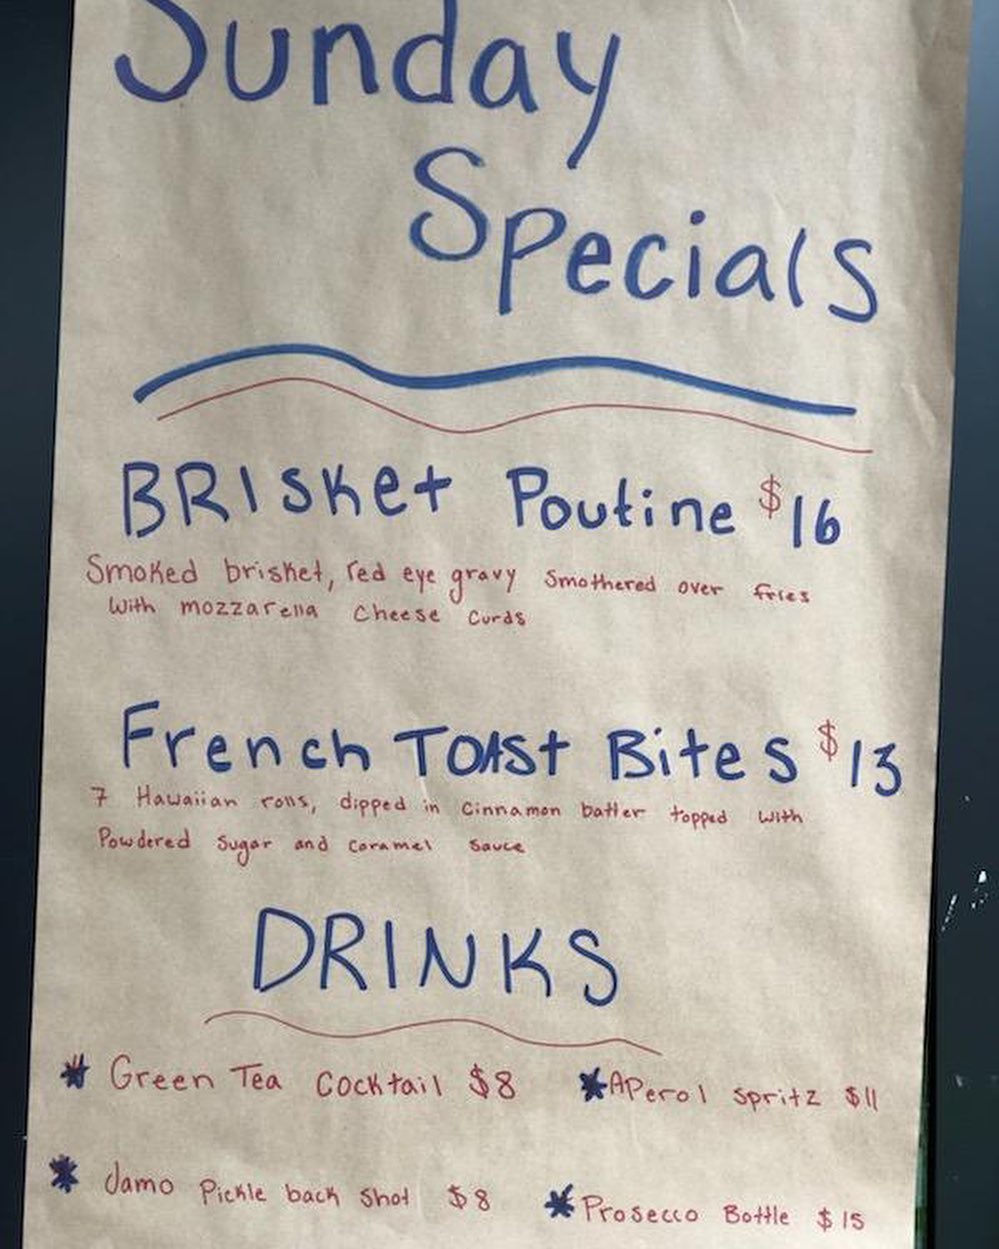 Sunday
Specials
BRISket Poutine $16
Smoked brisket, red eye gravy Smothered over fries
with mozzarella cheese curds
French TOASt Bites $13
7 Hawaiian rolls, dipped in Cinnamon batter topped with
Powdered Sugar and caramel sauce
DRINKS
* Green Tea Cocktail $8
* APerol Spritz $11
* Jamo Pickle back Shot $8
* Prosecco Bottle $15